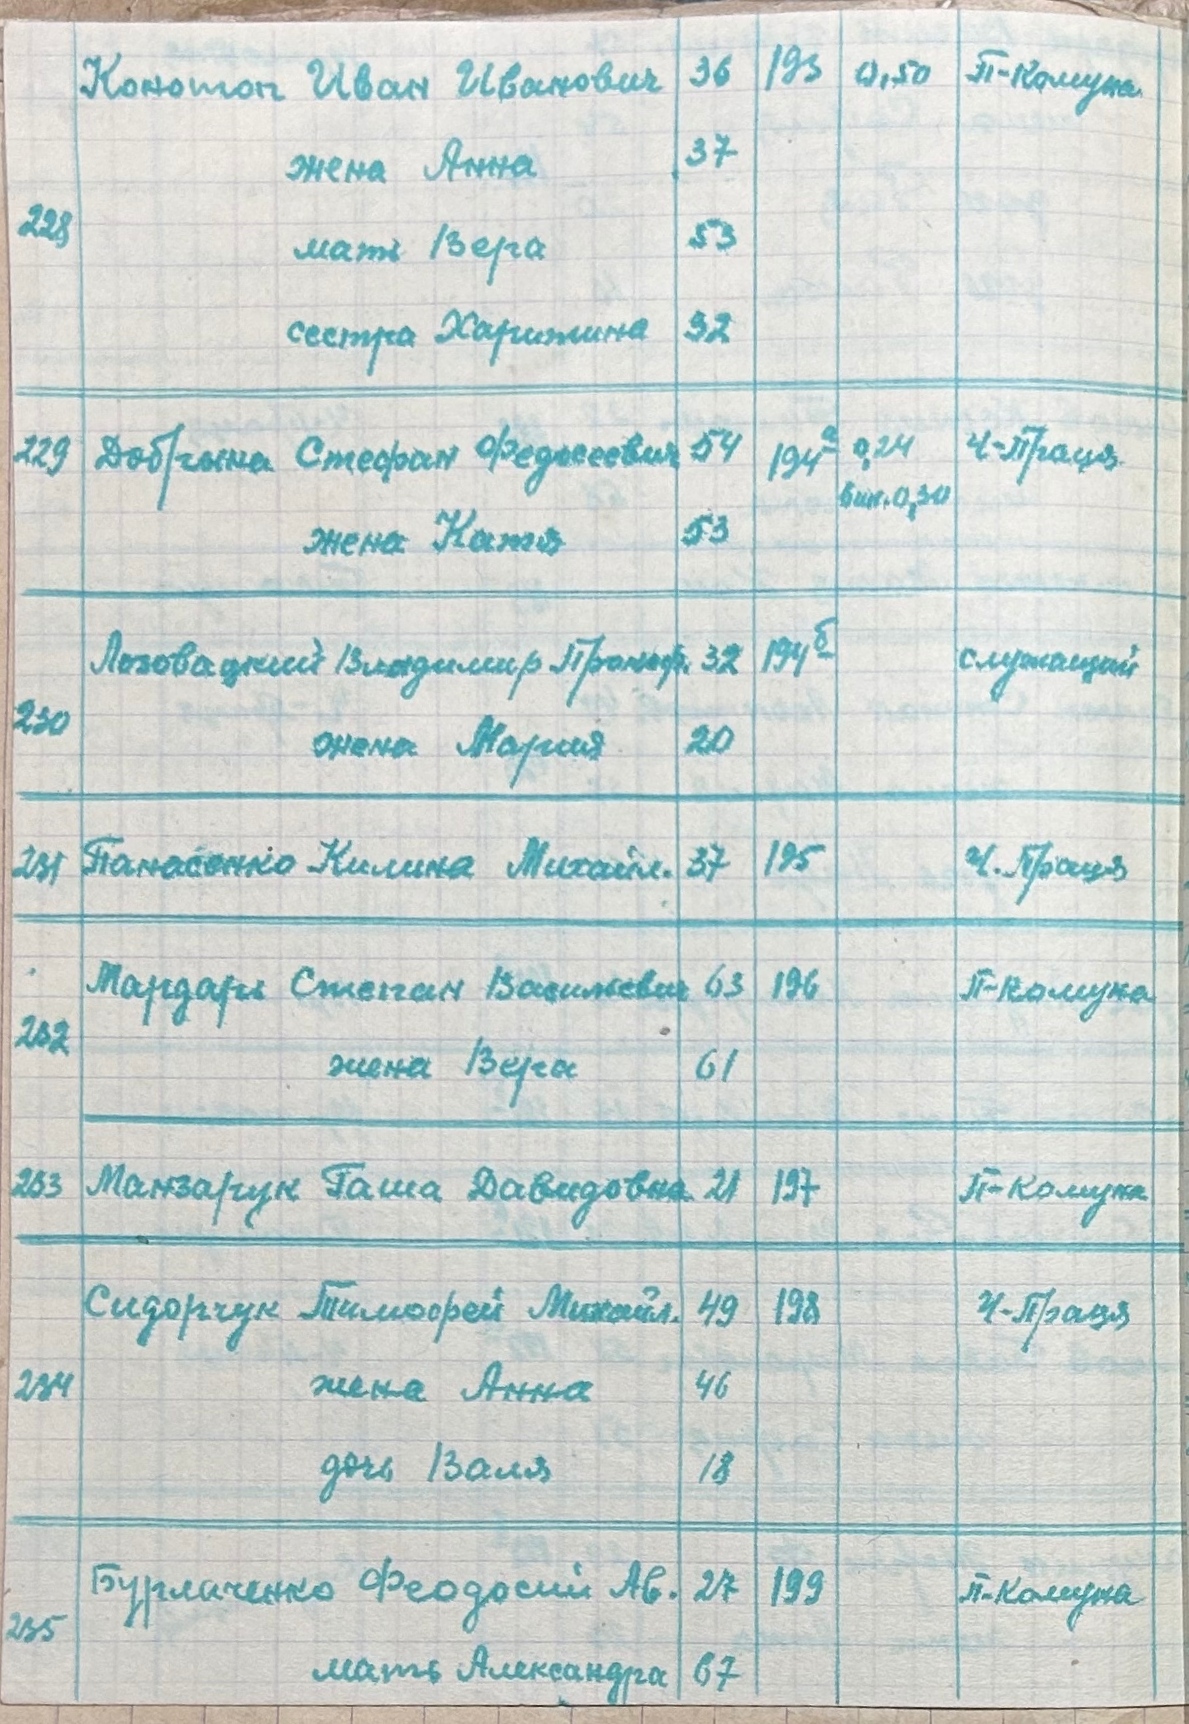 Конотоп Иван Иванович 36 193 0,50 П-Комуна
жена Анна 37
228
мать Вера 53
сестра Харитина 32
229 Добрына Стефан Федосеевич 54 194а 0,24 Ч-Праця
вин. 0,30
жена Катя 53
Лозовацкий Владимир Прокоф. 32 194б служащий
230
жена Мария 20
231 Панасенко Килина Михайл. 37 195 Ч. Праця
Мардарь Степан Васильевич 63 196 П-Комуна
232
жена Вера 61
233 Манзарук Гаша Давидовна 21 197 П-Комуна
Сидорчук Тимофей Михайл. 49 198 Ч-Праця
234 жена Анна 46
дочь Валя 18
Бурлаченко Феодосий Ав. 27 199 П-Комуна
235
мать Александра 67